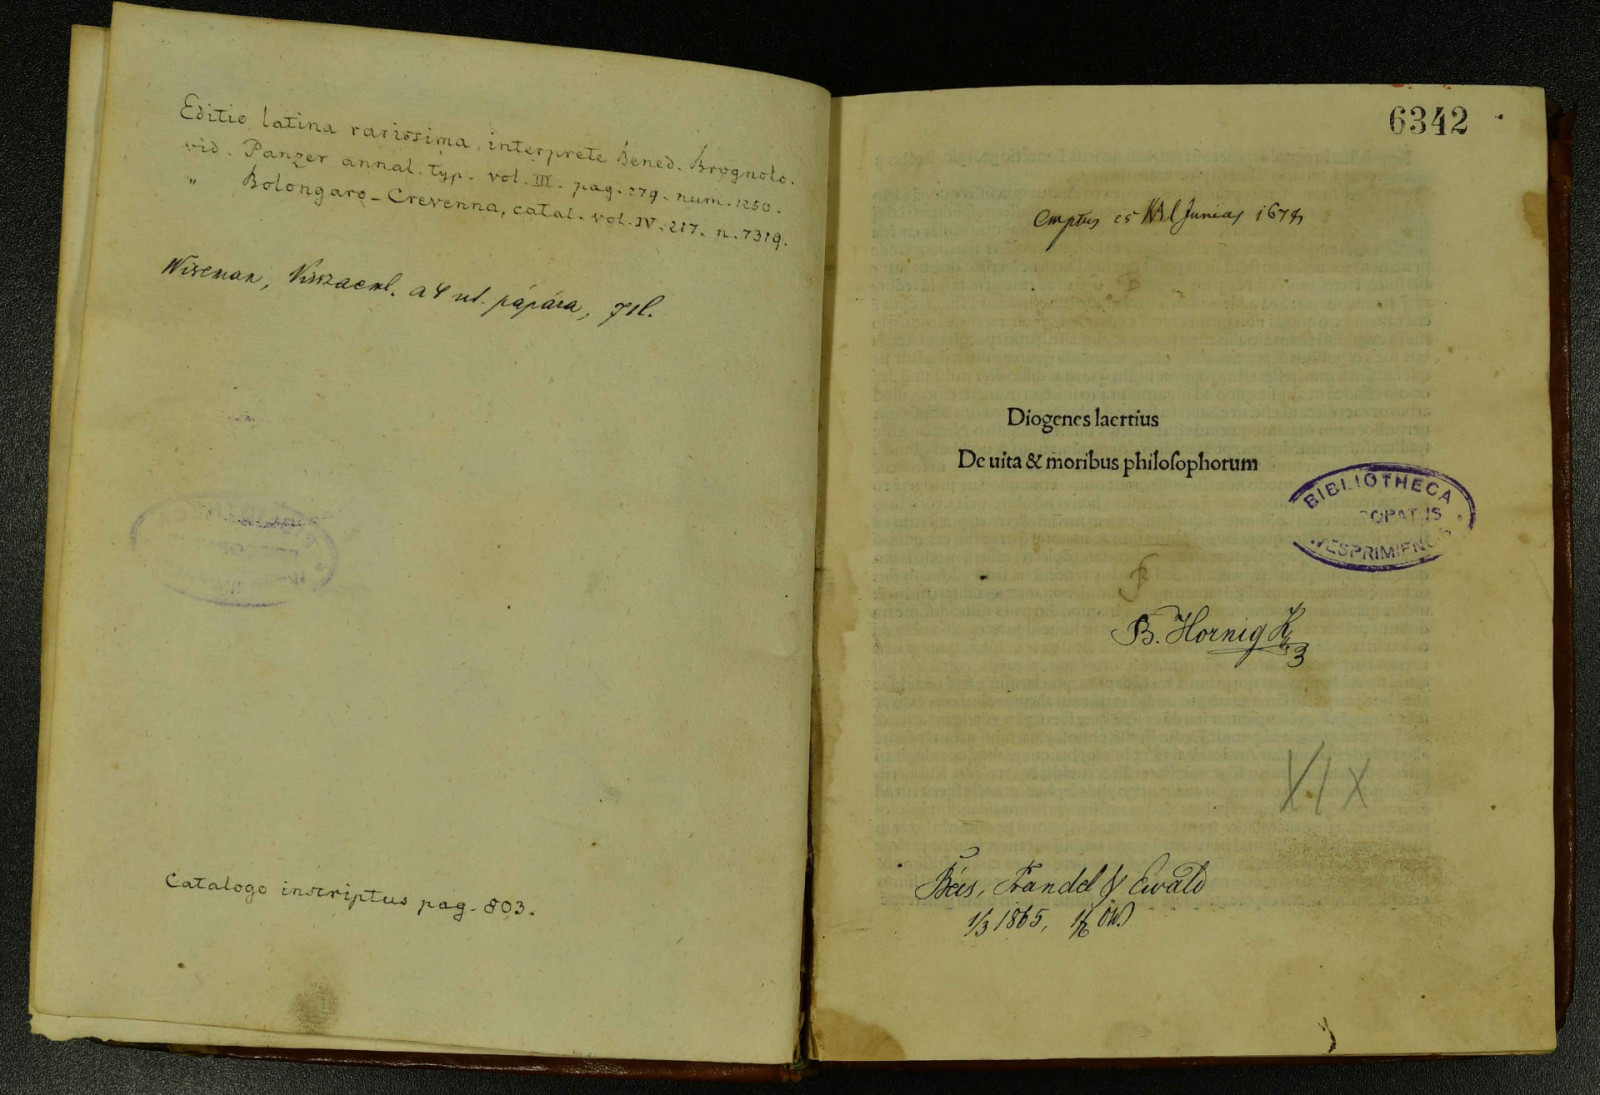 Editio latina rarissima, interprete Bened. Brognolo.
vid. Panzer annal. typ. vol. III. pag. 279. num. 1250.
" Bolongaro-Crevenna, catal. vol. IV. 217. n. 7319.
Wiseman, Visszaeml. a 4 ut. pápára,
Catalogo inscriptus pag. 803.
6342
Emptus es Kal Junias
Diogenes laertius
De uita & moribus philoſophorum
BIBLIOTHECA
OPATUS
WESPRIMIENSIS
B. Hornig K
XIX
Bécs, Frandel & Ewald
1/3 1865,